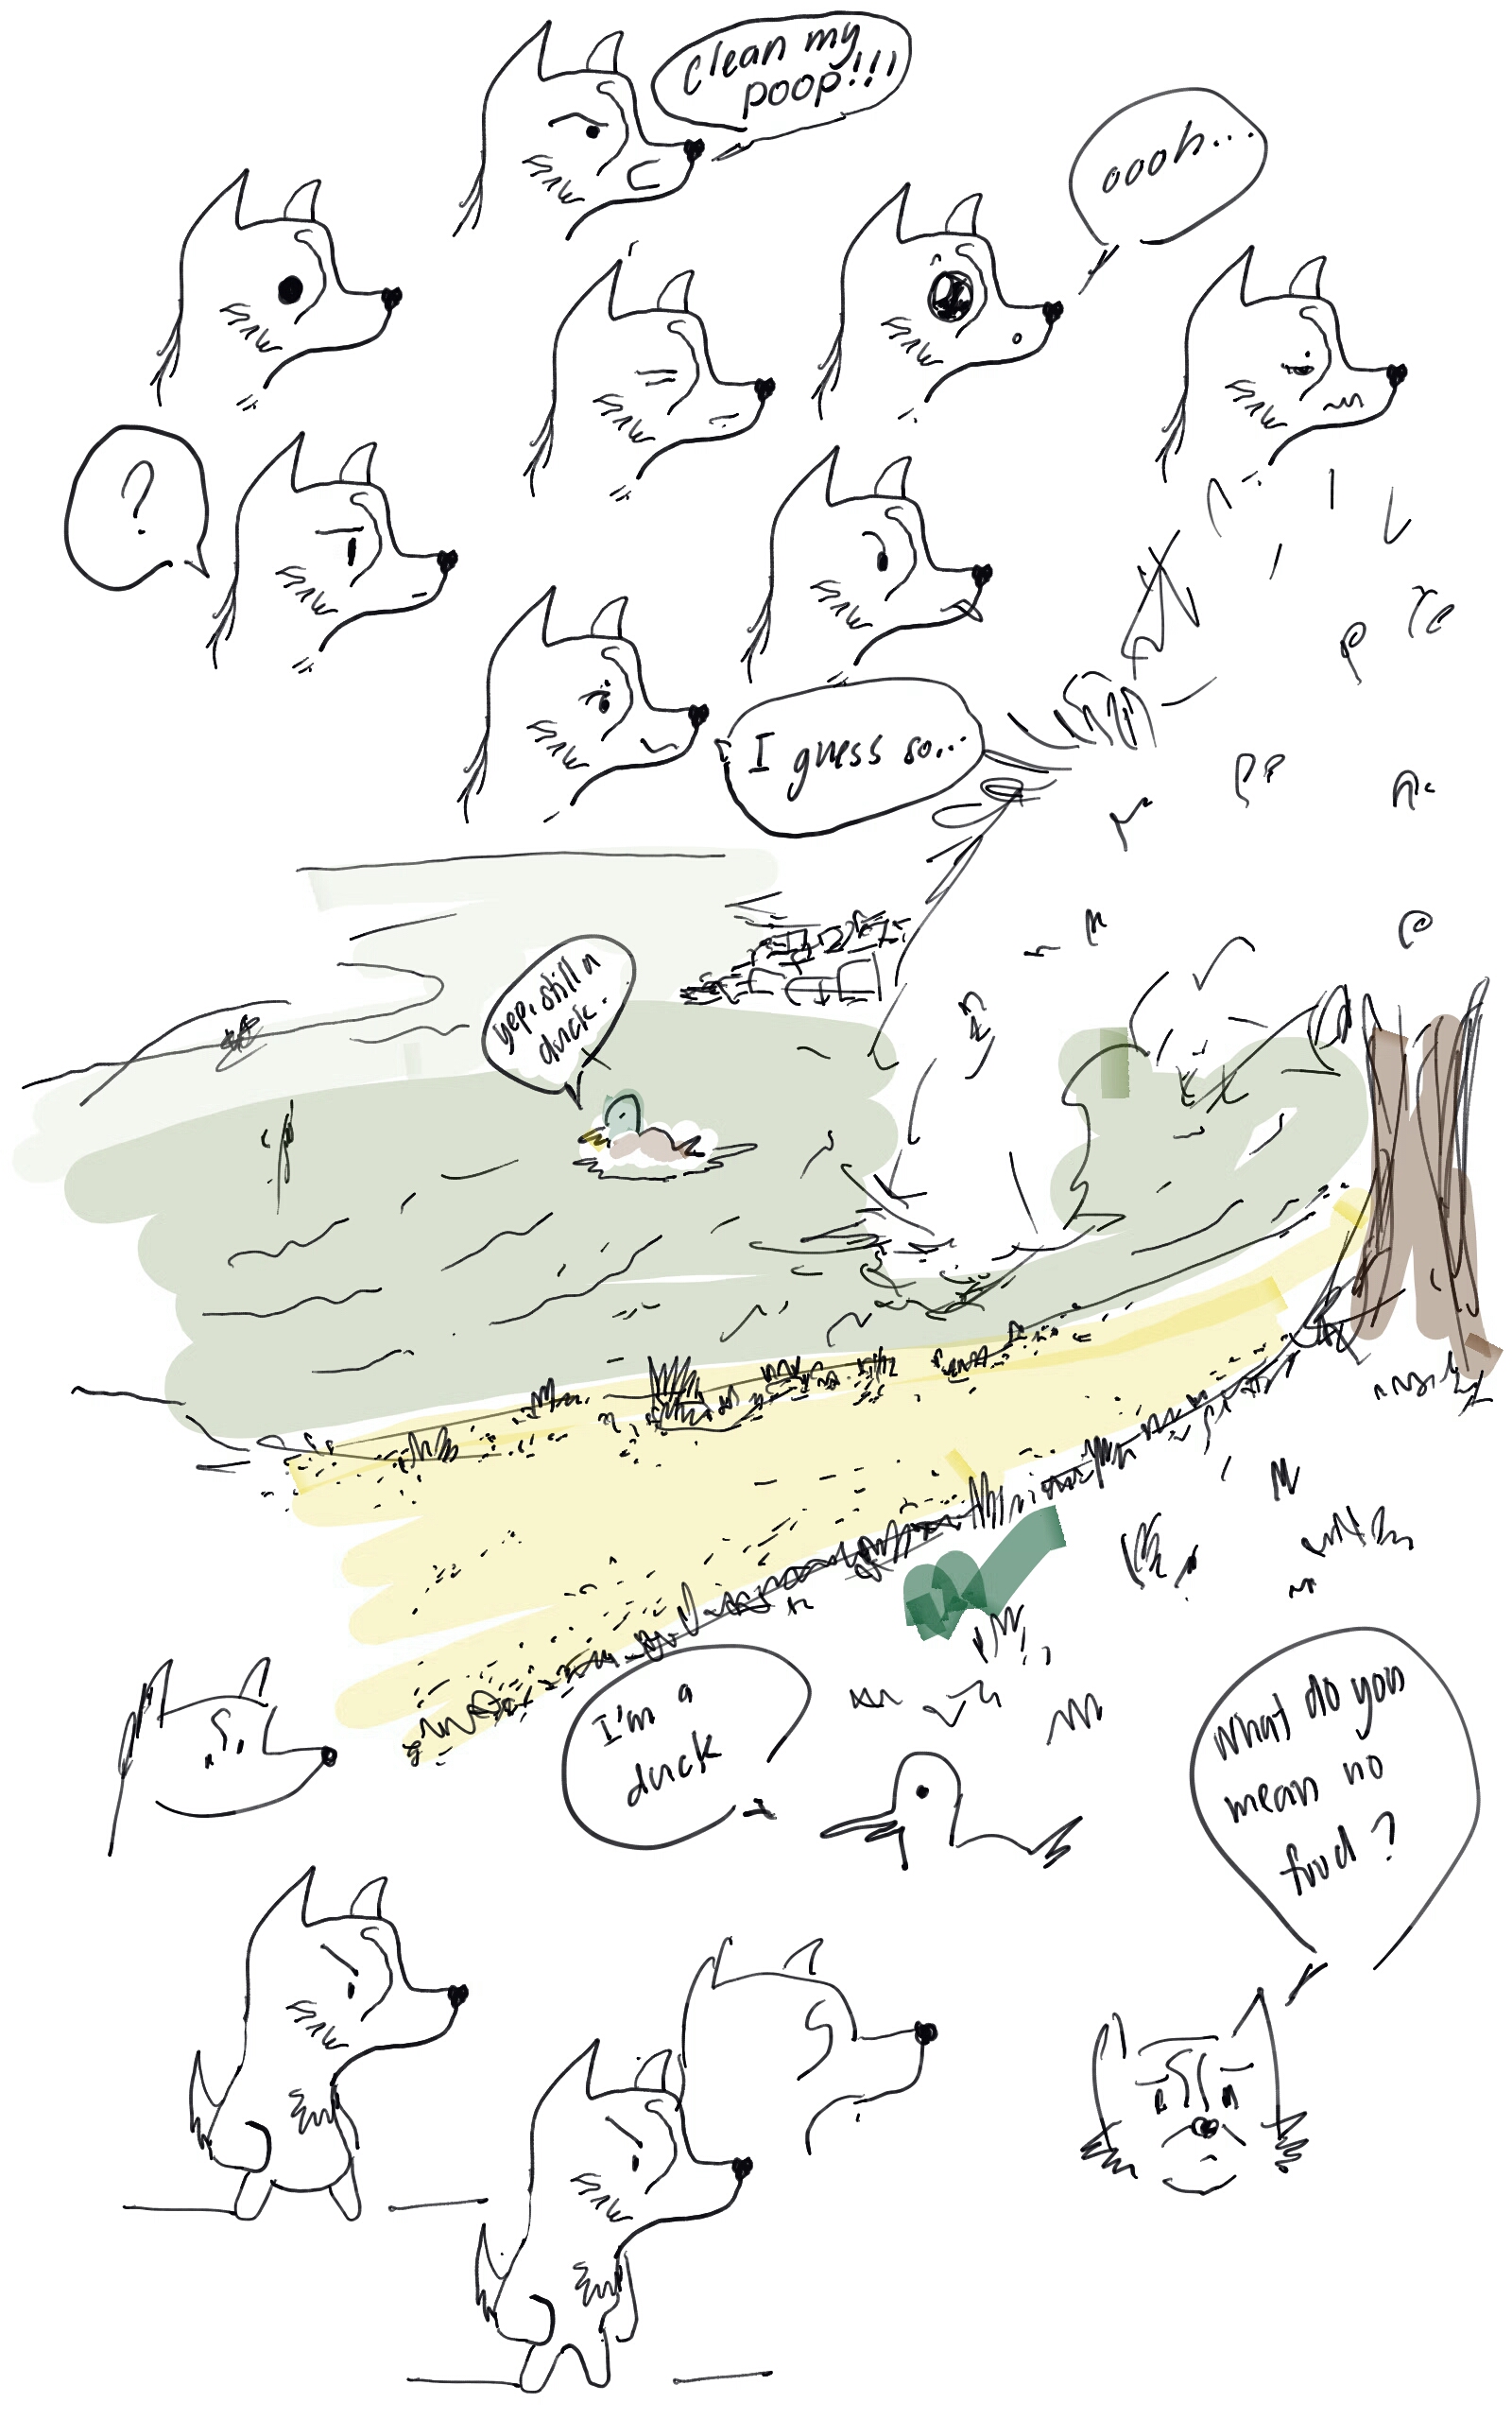 clean my
poop!!!
oooh...
?
I guess so...
yep. still a
duck.
I'm a
duck
what do you
mean no
food?